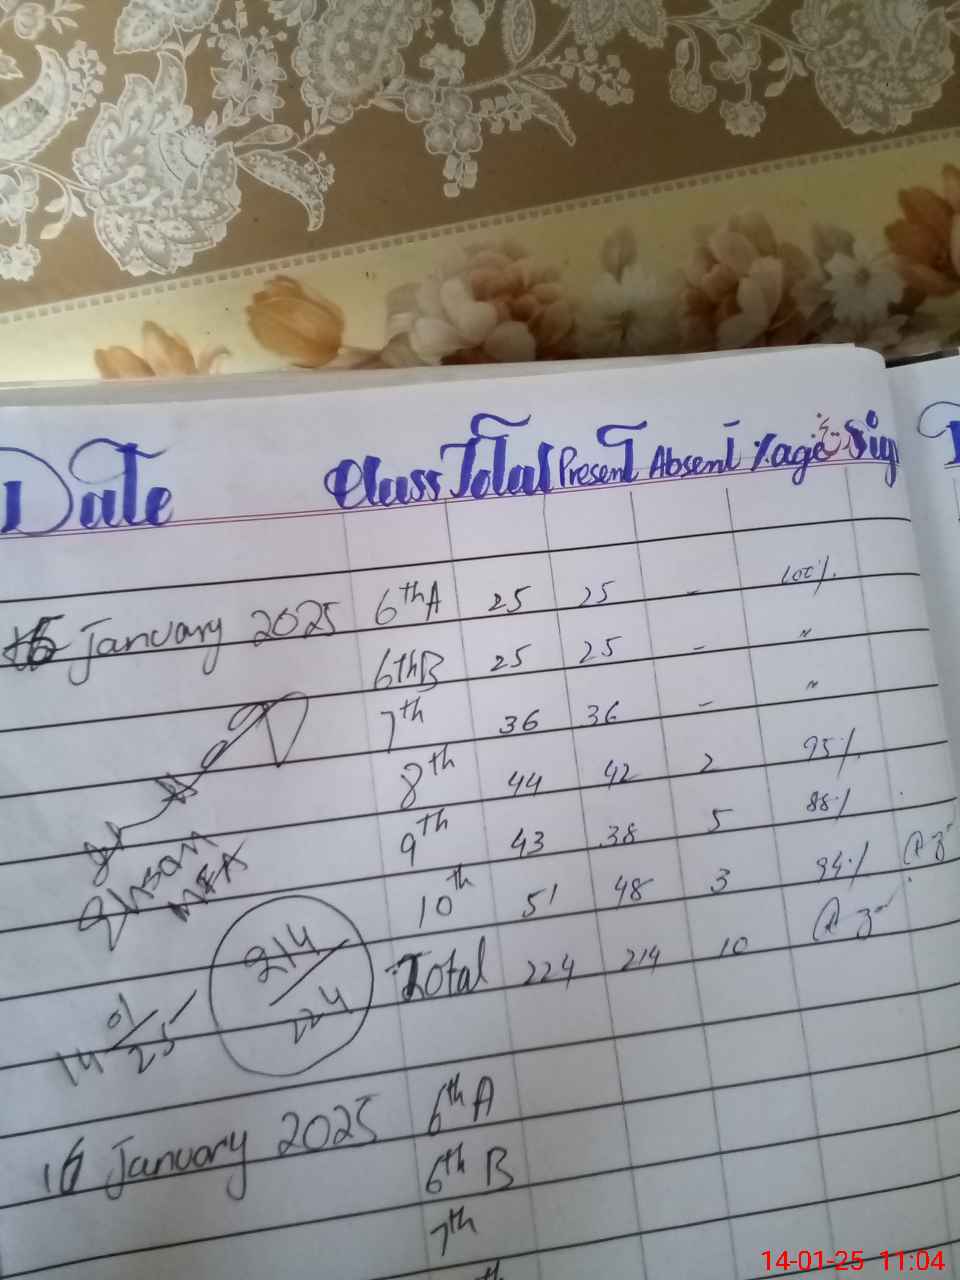 Date Class Total Present Absent %age Sig
15 January 2025 6th A 25 25 - 100%
6th B 25 25 - "
7th 36 36 - "
8th 44 42 2 95%
9th 43 38 5 88%
10th 51 48 3 94%
Total 224 214 10
214
224
14/01/25
16 January 2025 6th A
6th B
7th
th
14-01-25 11:04